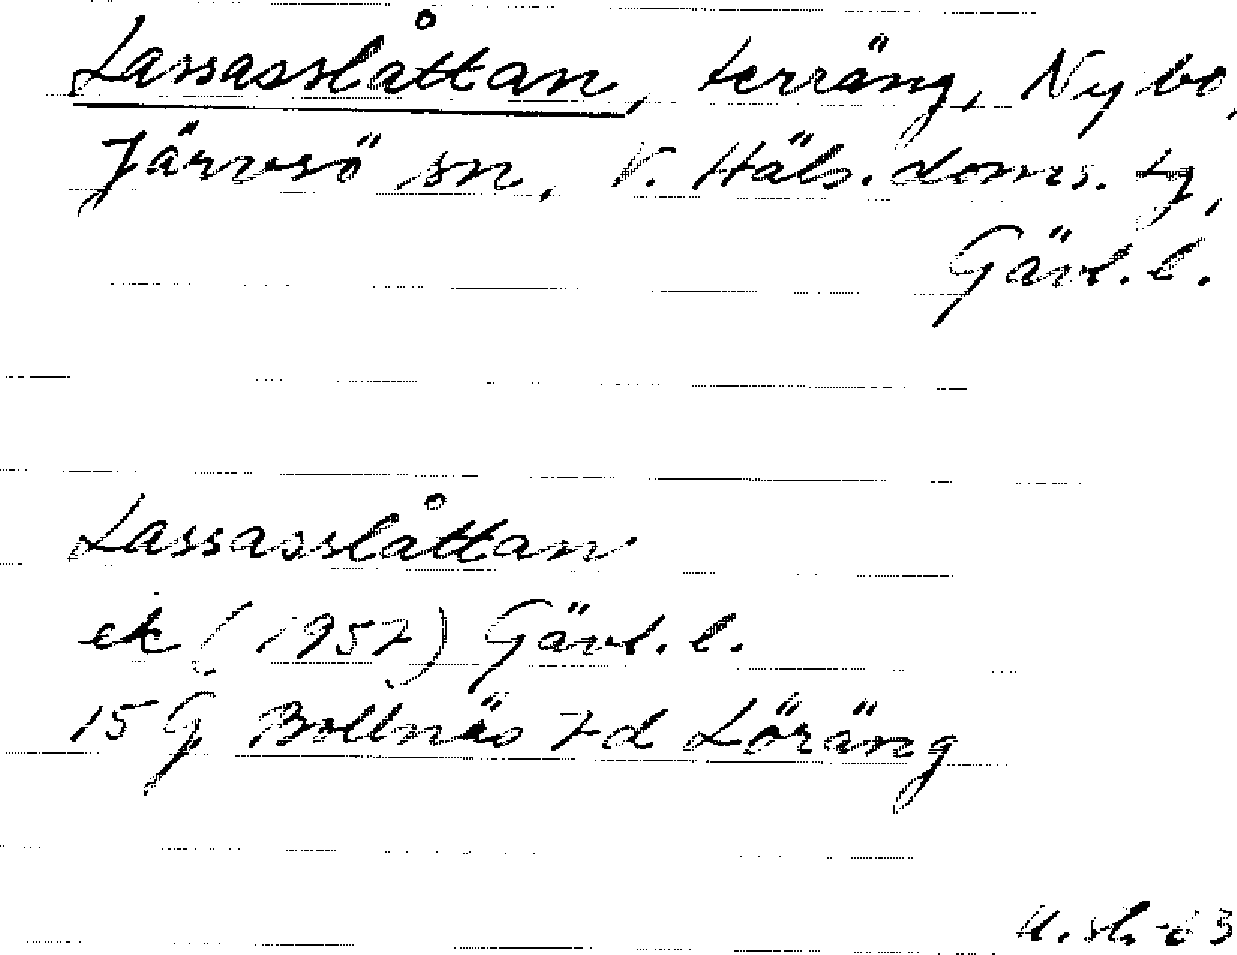 Lassasslåttan, terräng, Nybo,
Järvsö sn, V. Häls. doms. tg,
Gävl. l.
Lassasslåttan
ek (1957) Gävl. l.
15 G Bollnäs 7d Löräng